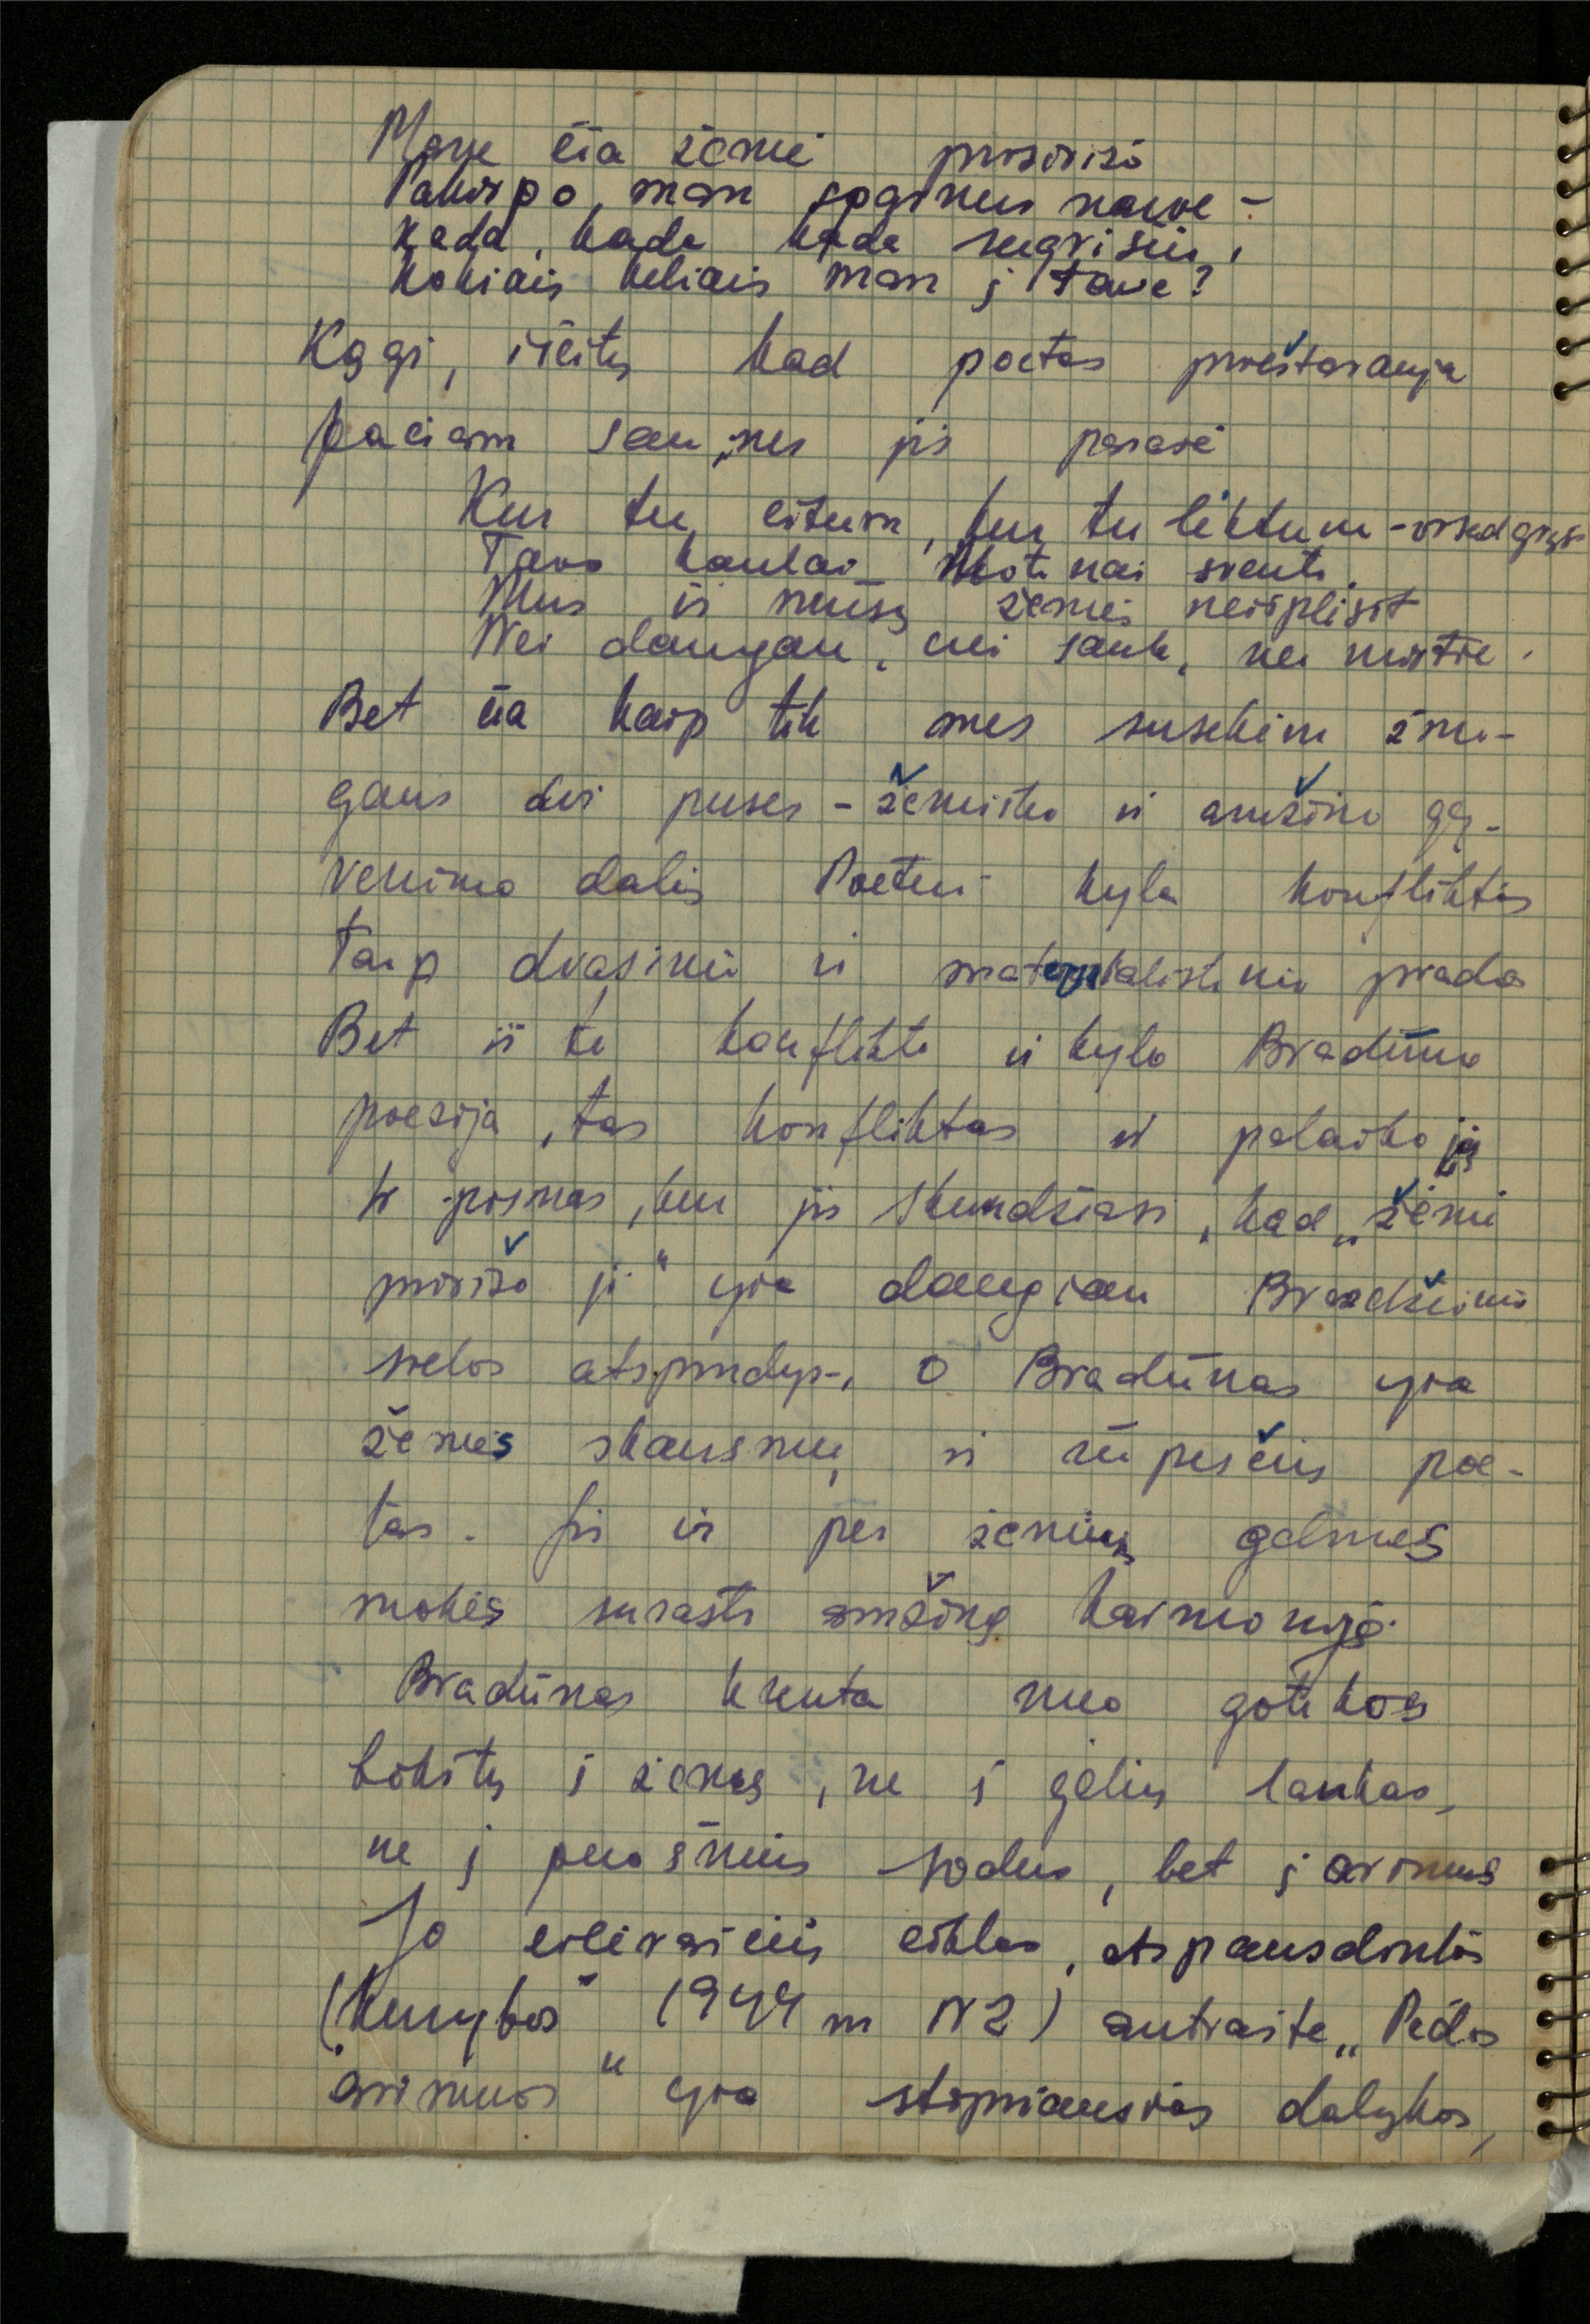 Mane čia žemė pririšo
Pakirpo man sparnus nauve –
Kada, kada kada sugrįšiu,
Kokiais keliais man į tave?
Kągi, išeitų kad poetas prieštarauja
pačiam sau, nes jis parašė
Kur tu eitum, kur tu liktum – visad grįši
Tavo kaulai Motinai šventi.
Mus iš mūsų žemės neišplėšit
Nei dangau, nei saule, nei mirtie.
Bet čia kaip tik mes susekim žmo-
gaus dvi puses – žemiško ir amžino gy-
venimo dalis Poetui kyla konfliktas
tarp dvasinio ir materialistinio prado
Bet iš to konflikto ir kyla Bradūno
poezija, tas konfliktas ir palaiko ją
Ir posmas, kur jis skundžiasi, kad „žemė
pririšo jį“ yra daugiau Brazdžionio
sielos atspindys, o Bradūnas yra
žemės skausmų ir rūpesčių poe-
tas. Jis ir per žemės gelmes
mokės surasti amžiną harmoniją.
Bradūnas krenta nuo gotikos
bokštų į žemę, ne į gėlių laukas,
ne į puošnius sodus, bet į arimus
Jo eilėraščių ciklas, atspausdintas
(Kūrybos“ 1944 m N2) antrašte „Pėdos
arimuos“ yra stipriausias dalykas,